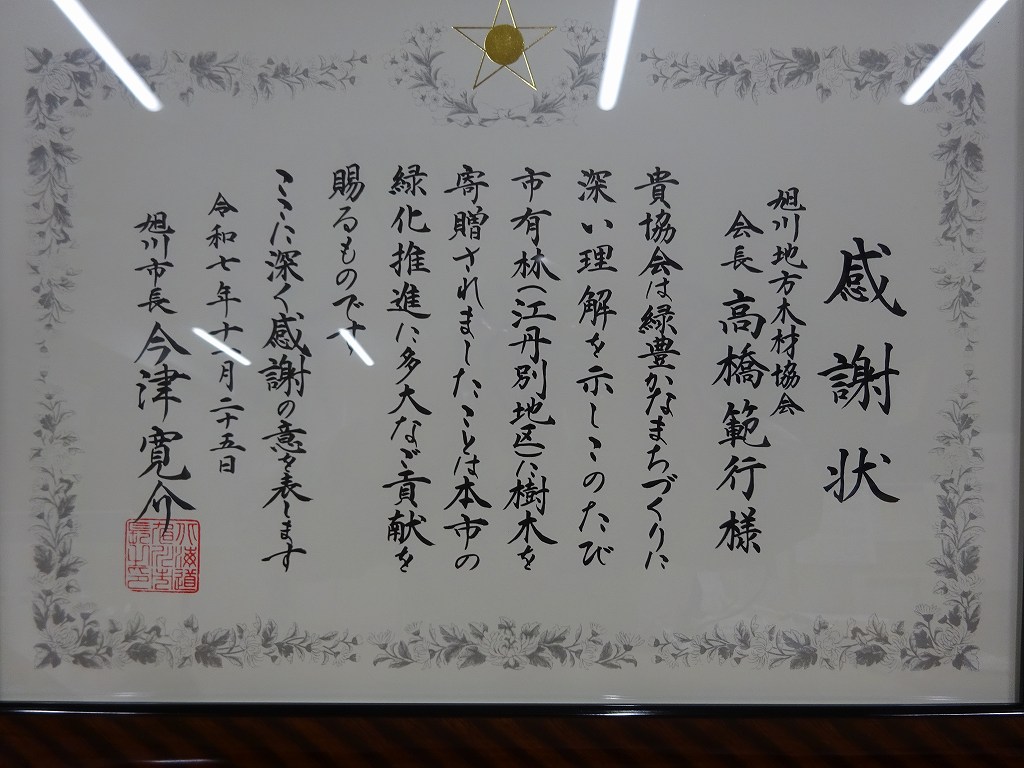 感謝状
旭川地方木材協会
会長 高橋範行様
貴協会は緑豊かなまちづくりに
深い理解を示しこのたび
市有林(江丹別地区)に樹木を
寄贈されましたことは本市の
緑化推進に多大なご貢献を
賜るものです
ここに深く感謝の意を表します
令和七年十一月二十五日
旭川市長 今津寛介
北海道
旭川市
長之印